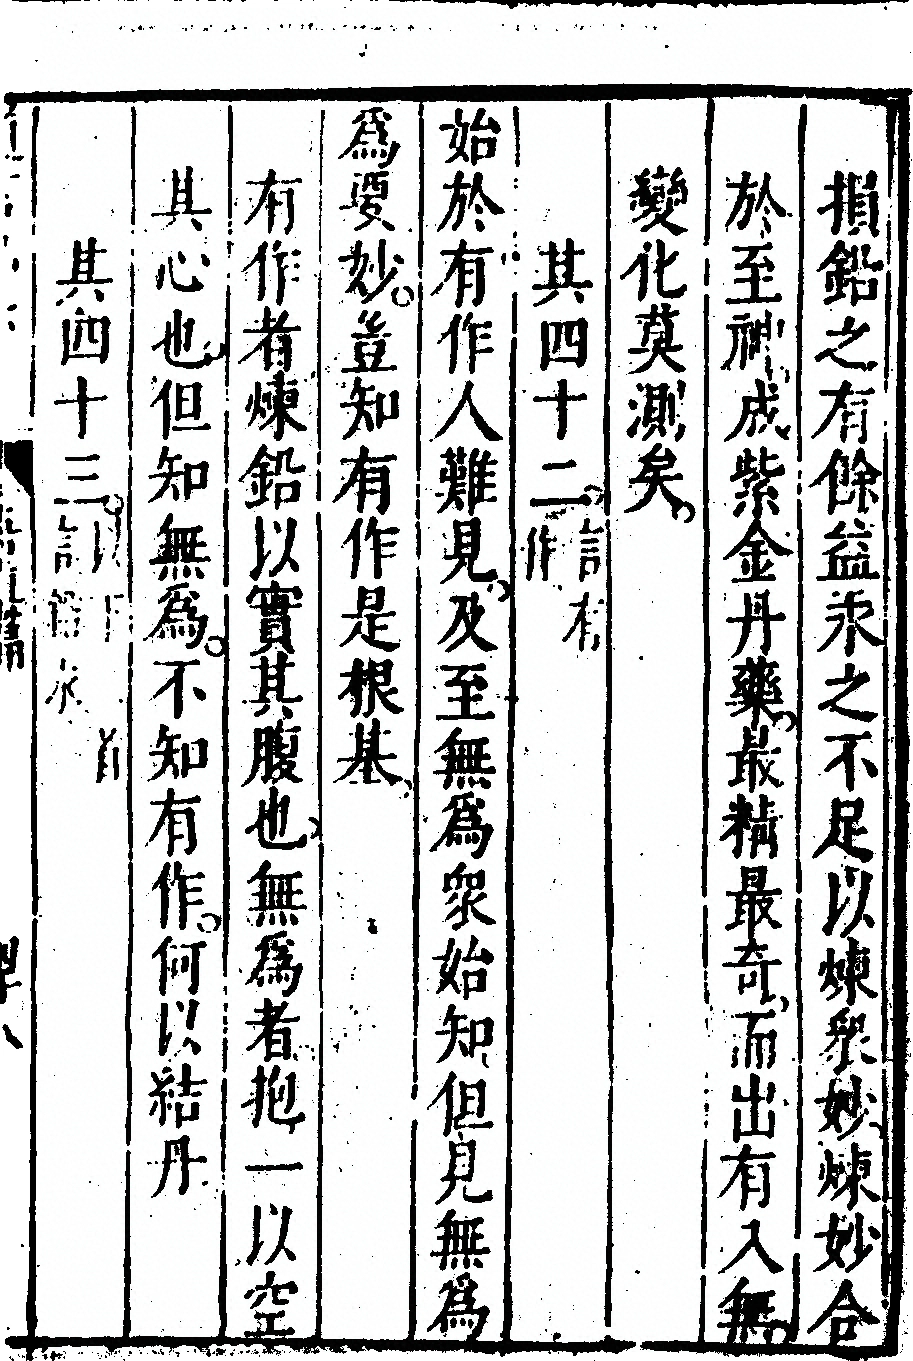 損鉛之有餘益汞之不足以煉衆妙煉妙合
於至神成紫金丹藥最精最奇而出有入無
變化莫測矣
其四十二言有作
始於有作人難見及至無爲衆始知但見無爲
爲要妙豈知有作是根基
有作者煉鉛以實其腹也無爲者抱一以空
其心也但知無爲不知有作何以結丹
其四十三